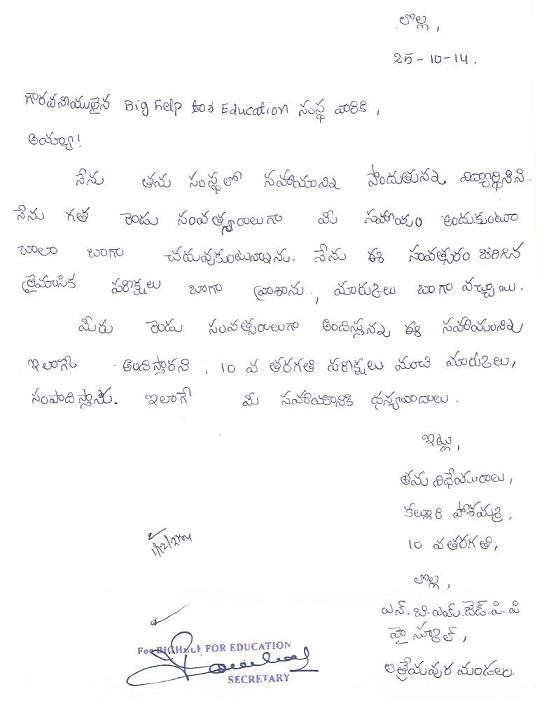 లొల్ల,
25-10-14.
గౌరవనీయులైన Big help for Education సంస్థ వారికి,
అయ్యా!
నేను తమ సంస్థలో సహాయమును పొందుతున్న విద్యార్థినిని.
నేను గత రెండు సంవత్సరాలుగా మీ సహాయం అందుకుంటూ
చాలా బాగా చదువుకుంటున్నాను. నేను ఈ సంవత్సరం జరిగిన
త్రైమాసిక పరీక్షలు బాగా వ్రాశాను, మార్కులు బాగా వచ్చాయి.
మీరు రెండు సంవత్సరాలుగా అందిస్తున్న ఈ సహాయమును
ఇలాగే అందిస్తారని, 10 వ తరగతి పరీక్షలు మంచి మార్కులు,
సంపాదిస్తాను. ఇలాగే మీ సహాయానికి ధన్యవాదాలు.
ఇట్లు,
తమ విధేయురాలు,
పోశమ్మ,
10 వ తరగతి,
లొల్ల,
ఎన్.బి.ఎమ్.జెడ్.పి.పి
హై స్కూల్,
ఆత్రేయపుర మండలం.
For BIGHELP FOR EDUCATION
SECRETARY